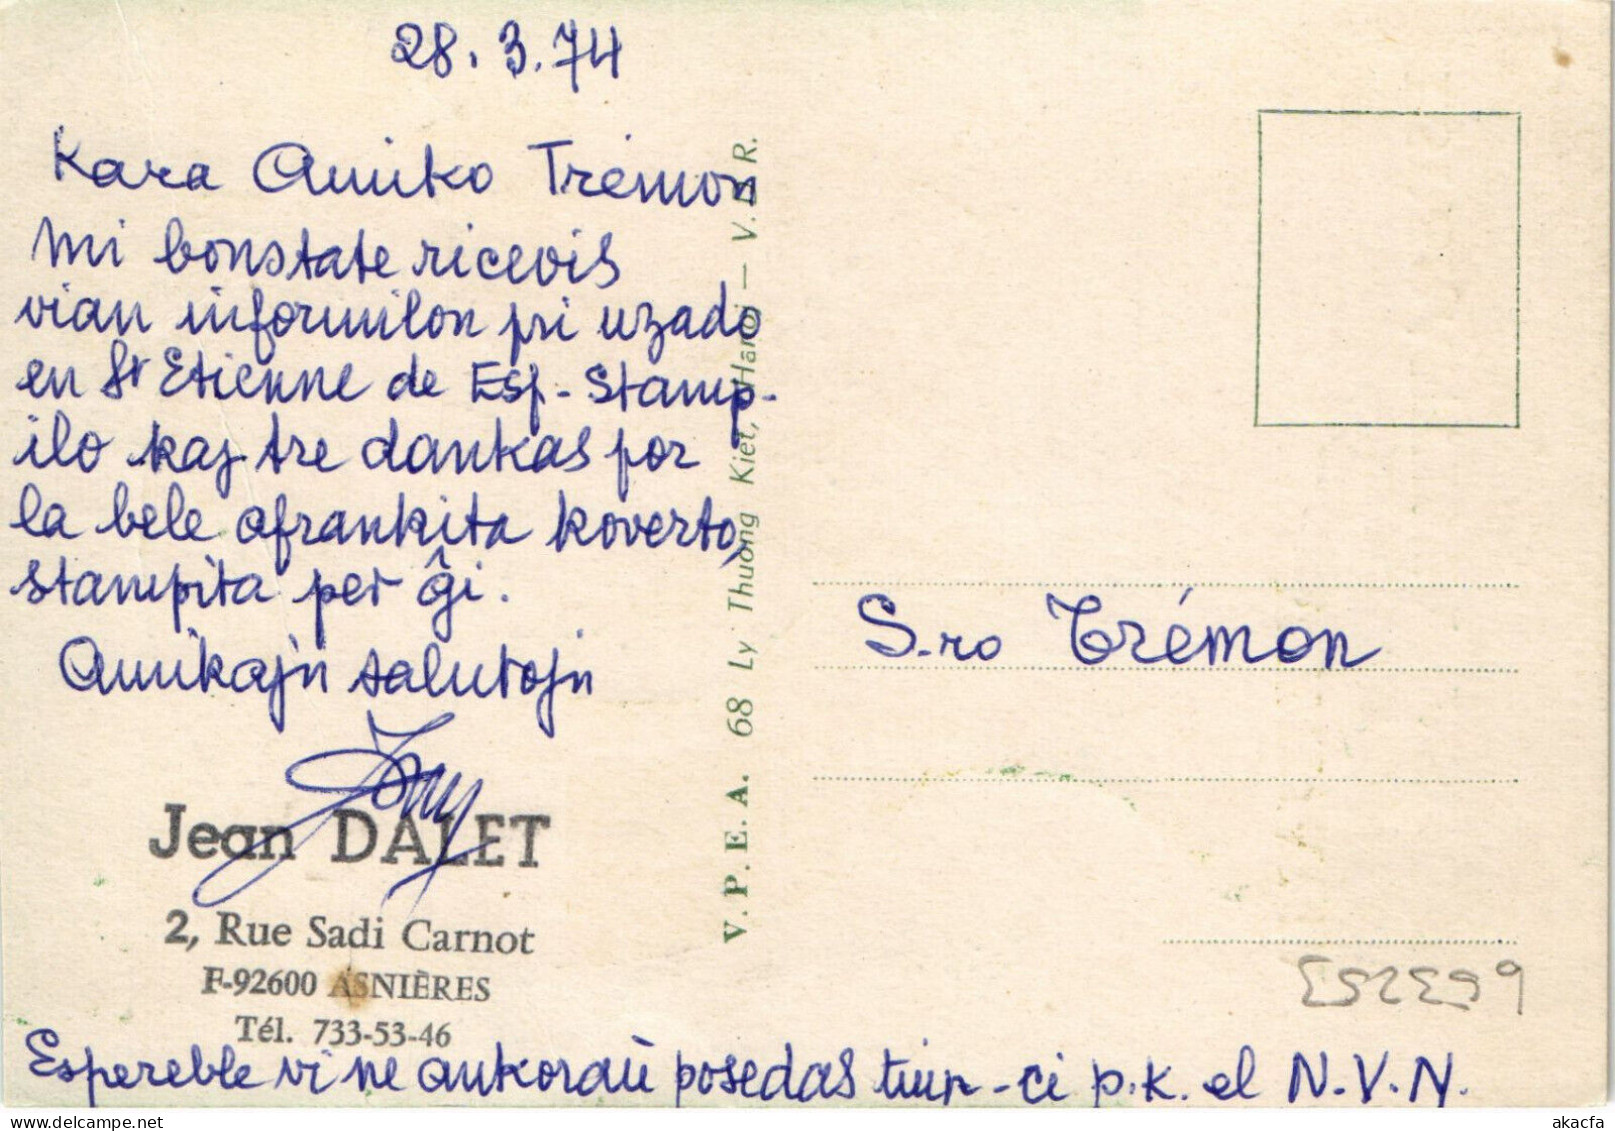 28.3.74
Kara Amiko Trémon
Mi bonstate ricevis
vian informilon pri uzado
en St Etienne de Esp-Stamp-
ilo kaj tre dankas por
la bele afrankita koverto,
stampita per ĝi.
Amikajn salutojn
Jean DALET
2, Rue Sadi Carnot
F-92600 ASNIÈRES
Tél. 733-53-46
Espereble vi ne ankoraù posedas tiun-ci p.k. el N.V.N.
V.P.E.A. 68 Ly Thuong Kiet, Hanoi — V. D. R.
S-ro Trémon
akacfa.delcampe.net
akacfa